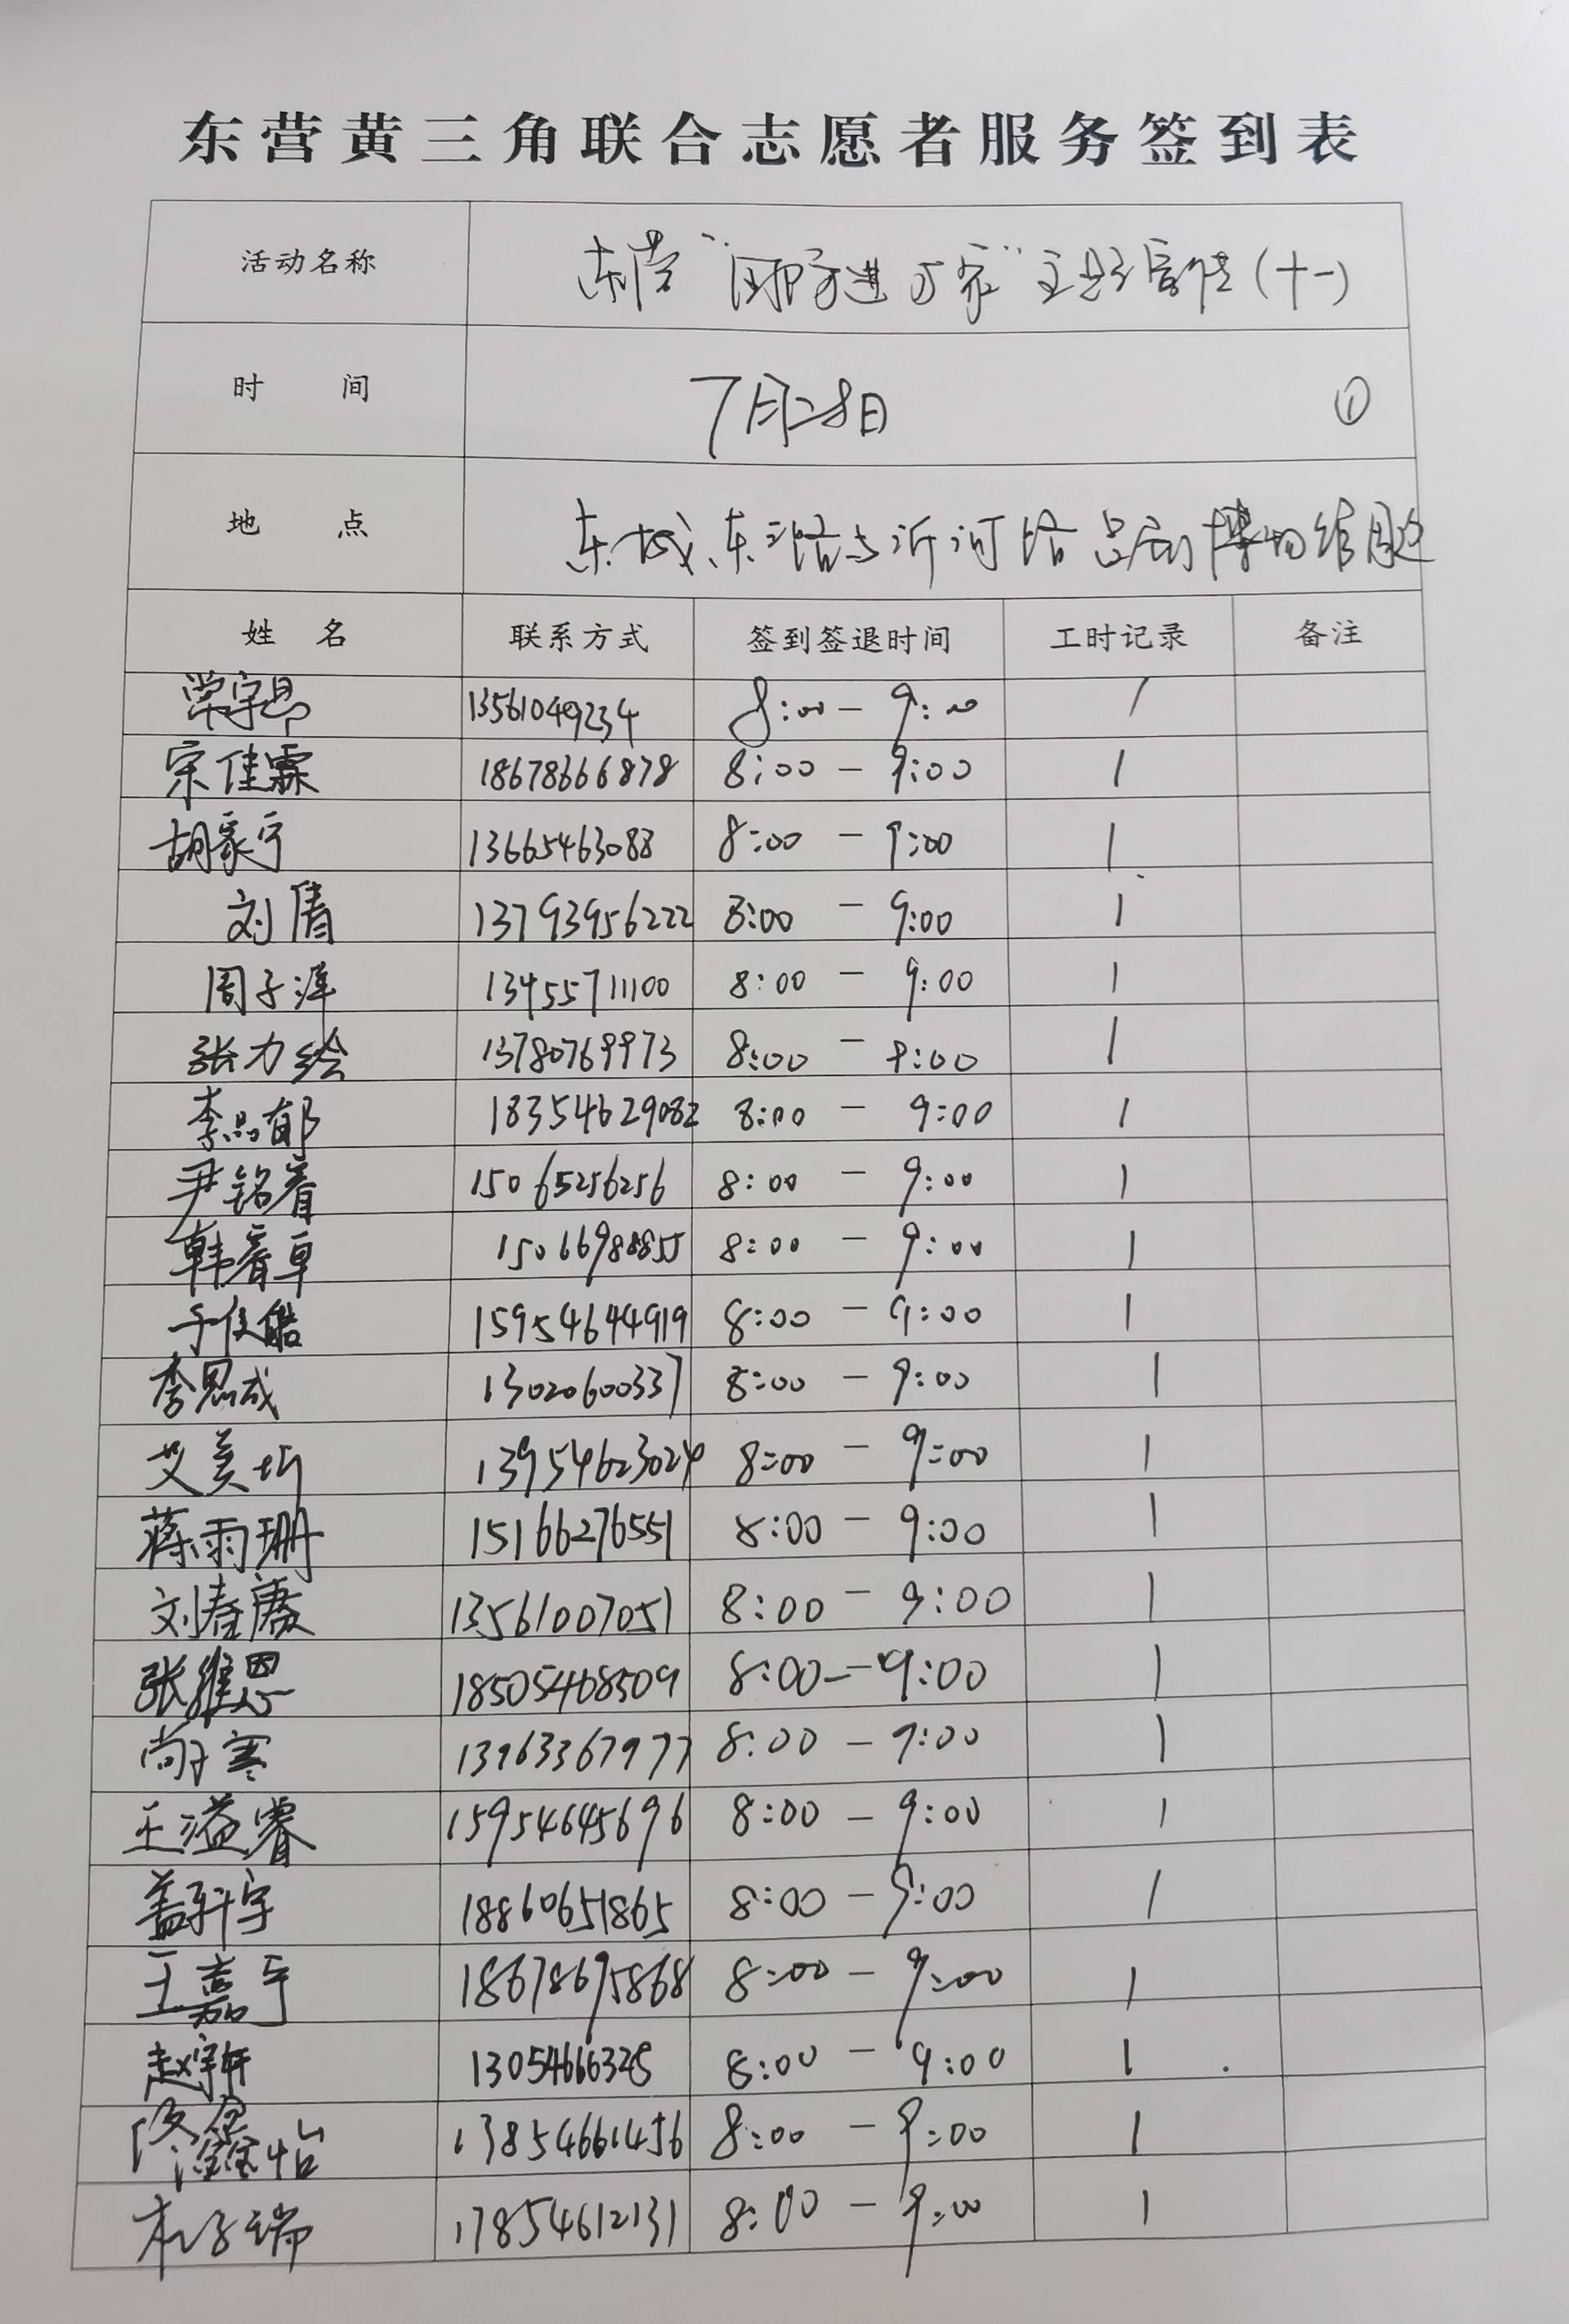 东营黄三角联合志愿者服务签到表
活动名称 东营“国防万进万家”主题宣传(十一)
时 间 7月28日 ①
地 点 东城东三路与沂河路
姓 名 联系方式 签到签退时间 工时记录 备注
13561049234 8:00 — 9:00 1
宋佳霖 18678666878 8:00 — 9:00 1
胡家宁 13665463088 8:00 — 9:00 1
刘倩 13793956222 8:00 — 9:00 1
周子洋 13455711100 8:00 — 9:00 1
张力绘 13780769973 8:00 — 9:00 1
李品郁 18354629082 8:00 — 9:00 1
尹铭睿 15065256256 8:00 — 9:00 1
韩睿卓 15066988855 8:00 — 9:00 1
于俊皓 15954644919 8:00 — 9:00 1
李思成 13020600337 8:00 — 9:00 1
艾美圻 13954623024 8:00 — 9:00 1
蒋雨珊 15166276551 8:00 — 9:00 1
刘春赓 13561007051 8:00 — 9:00 1
张维恩 18505468509 8:00 — 9:00 1
尚子寒 13963367977 8:00 — 9:00 1
王溢睿 15954645696 8:00 — 9:00 1
盖科宇 18860651865 8:00 — 9:00 1
王嘉宁 18678695868 8:00 — 9:00 1
赵宇轩 13054666328 8:00 — 9:00 1
鑫怡 13854661456 8:00 — 9:00 1
子瑞 17854612131 8:00 — 9:00 1